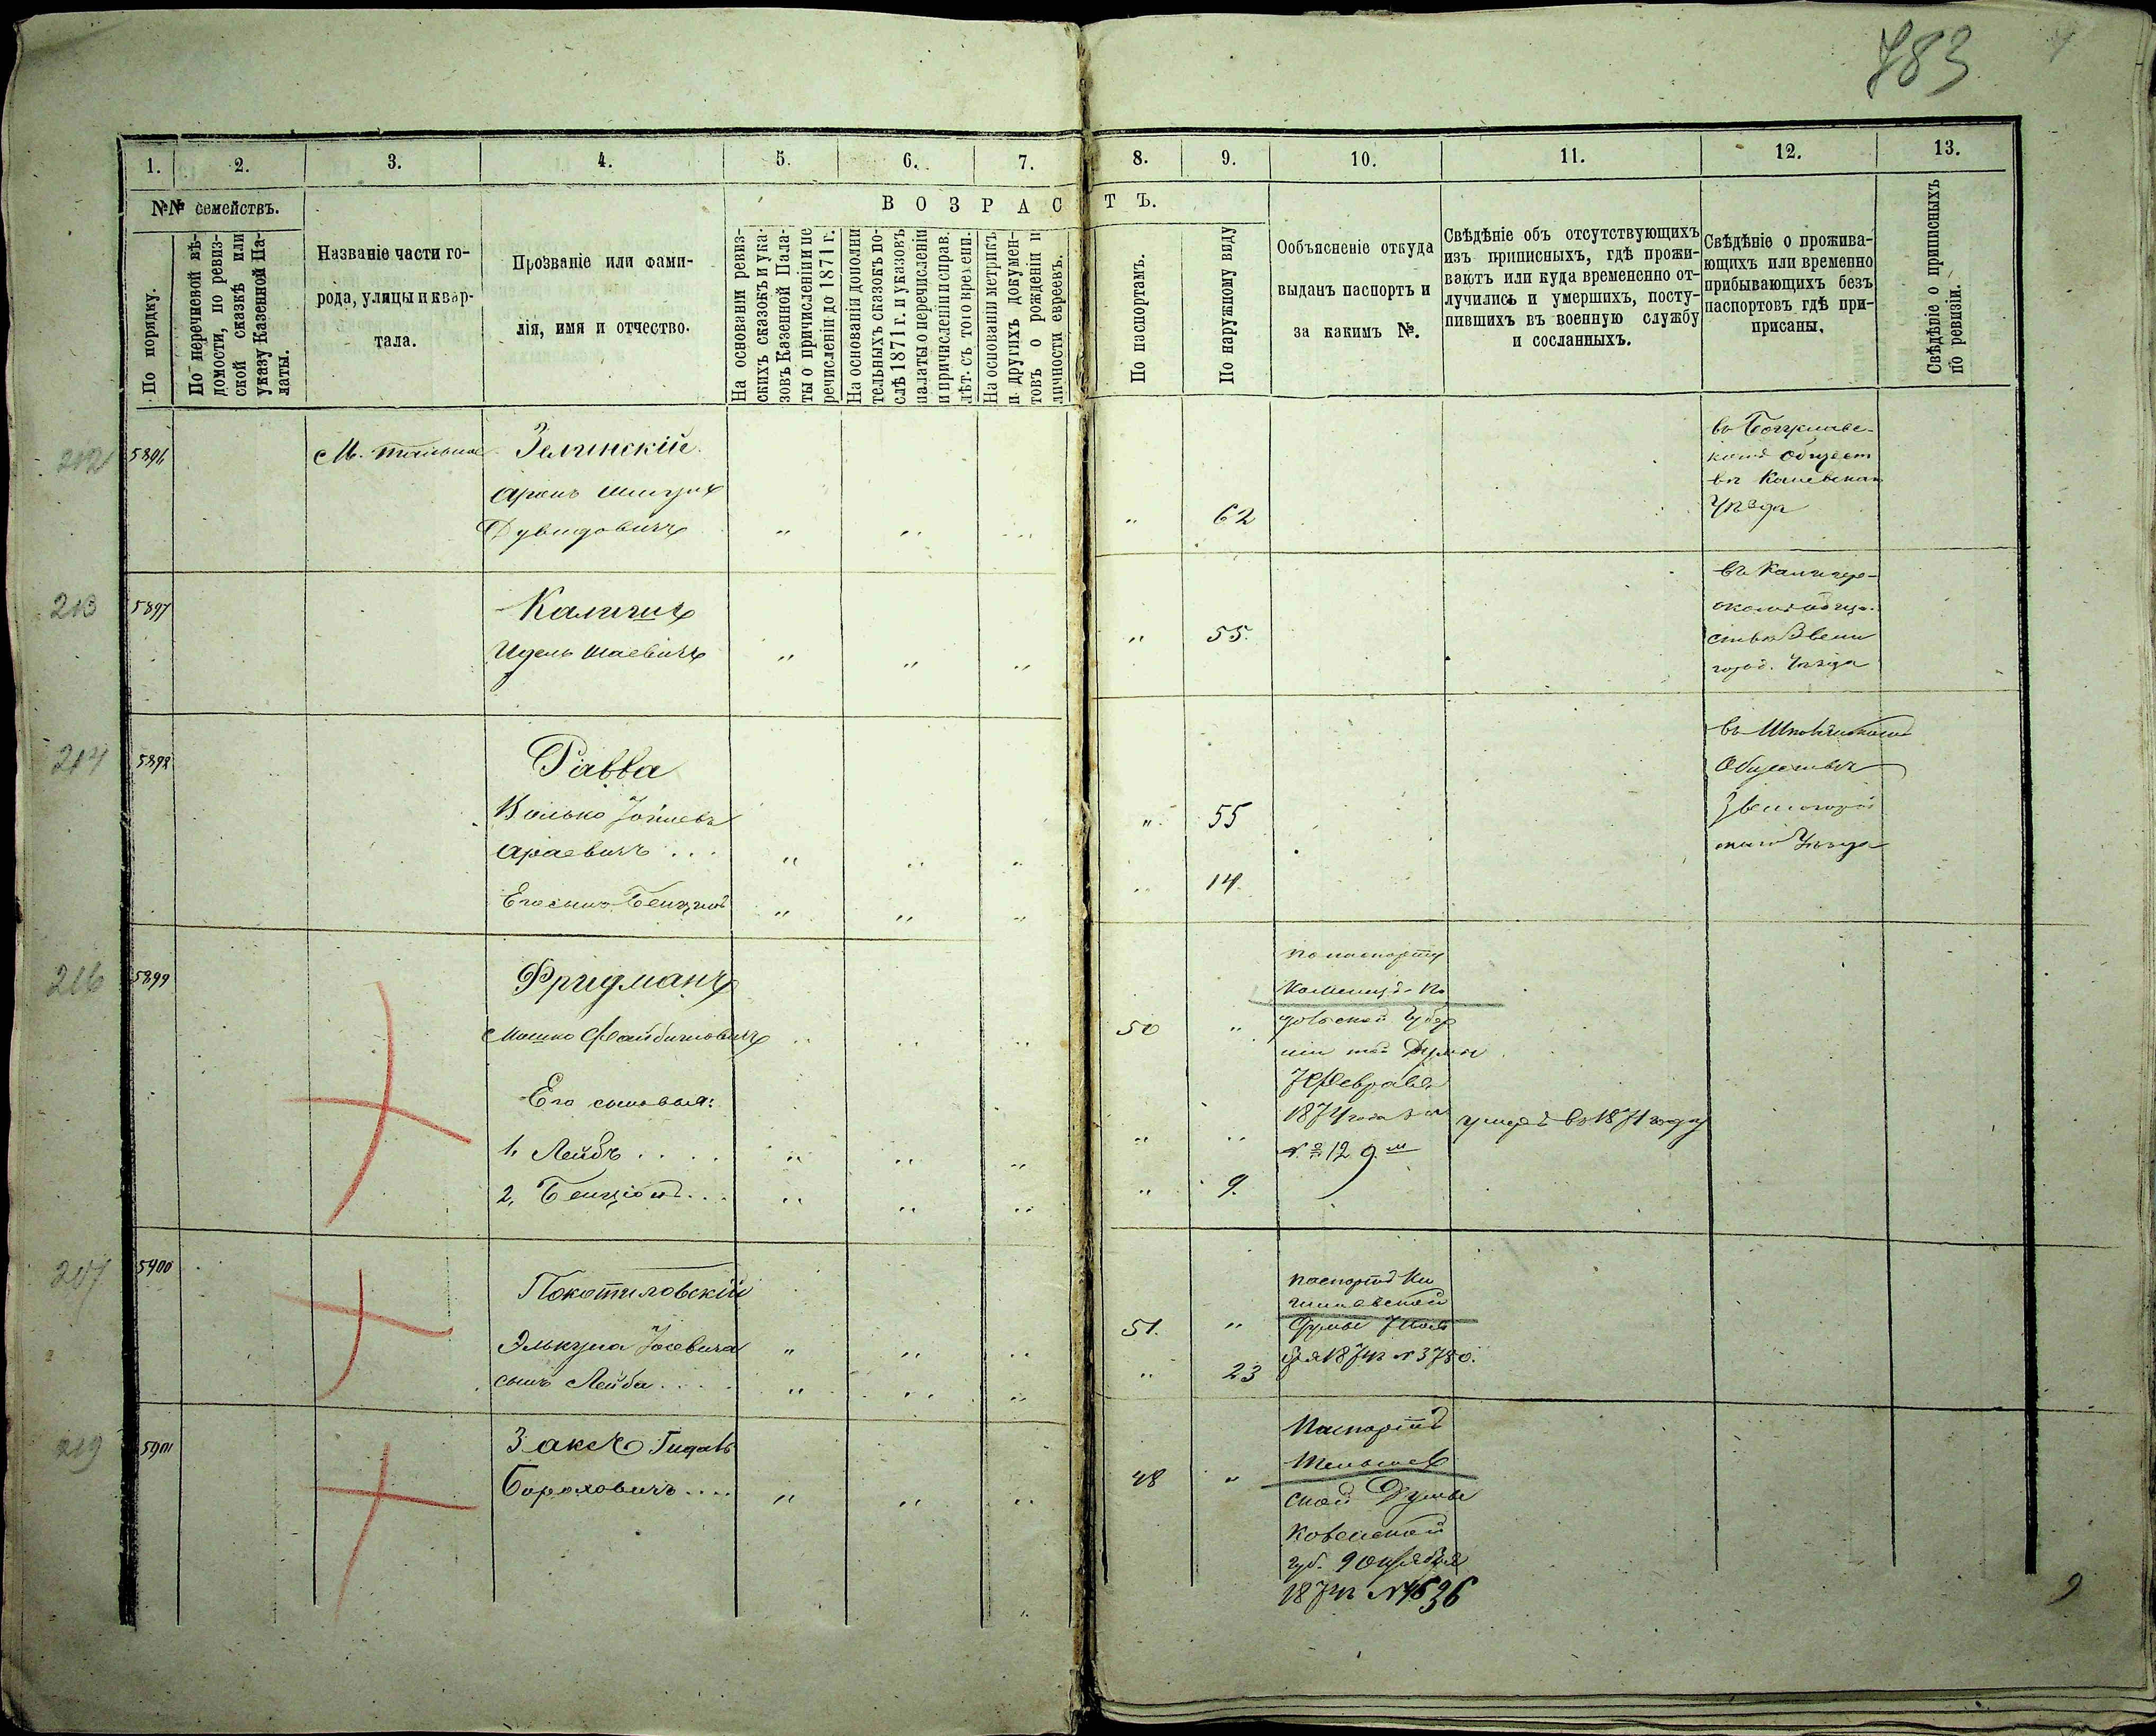 783
1.
2.
3.
4.
5.
6.
7.
8.
9.
10.
11.
12.
13.
№№ семействъ.
ВОЗРАСТЪ.
По порядку.
По перечневой вѣ-
домости, по ревиз-
ской сказкѣ или
указу Казенной Па-
латы.
Названіе части го-
рода, улицы и квар-
тала.
Прозваніе или фами-
лія, имя и отчество.
На основаніи ревиз-
скихъ сказокъ и ука-
зовъ Казенной Пала-
ты о причисленіи и пе
речисленіи до 1871 г.
На основаніи дополни
тельныхъ сказокъ по-
слѣ 1871 г. и указовъ
палаты о перечисленіи
и причисленіи и справ.
лѣт. съ того времени.
На основаніи метрикъ
и другихъ докумен-
товъ о рожденіи и
личности евреевъ.
По паспортамъ.
По наружному виду
Ообъясненіе откуда
выданъ паспортъ и
за какимъ №.
Свѣдѣніе объ отсутствующихъ
изъ приписныхъ, гдѣ прожи-
ваютъ или куда временно от-
лучились и умершихъ, посту-
пившихъ въ военную службу
и сосланныхъ.
Свѣдѣніе о прожива-
ющихъ или временно
прибывающихъ безъ
паспортовъ гдѣ при-
присаны.
Свѣдѣніе о приписныхъ
по ревизіи.
212
5896
М. Тальное
Зелинскій
Аронъ
Дувидовичъ
" " " " 62
въ Богуславс-
комъ Общест
вѣ Каневскаго
Уѣзда
213
5897
Каличъ
Идель Шаевичъ
" " " " 55.
въ
ствѣ Звени
город. Уѣзда
214
5898
Равва
Волько
Араевичъ . . .
" " " " 55
Его сынъ Бенціонъ
" " " " 14
въ Шполянскомъ
Обществѣ
Звенигород
скаго Уѣзда
216
5899
Фридманъ
Мошко Файбишовичъ
" " " 50 "
Его сыновья:
1. Лейбъ . . . .
" " " " "
2, Бенціонъ . . .
" " " " 9.
по паспорту
Каменецъ-По
дольской Губер
ніи Думы
7 Февраля
1874 года за
№ 129.м
умеръ въ 1871 году
217
5900
Покотиловскій
Элькуна Іосевича
" " " 51. "
сынъ Лейба . . . .
" " " " 23
паспортъ Ки
шиневской
Думы 7
1874 г № 3780.
219
5901
Заксъ Гидаль
Бороховичъ . . . .
" " " 48 "
Паспортъ
Тельшев
ской Думы
Ковенской
губ. 9 Октября
1874 г № 4636
9